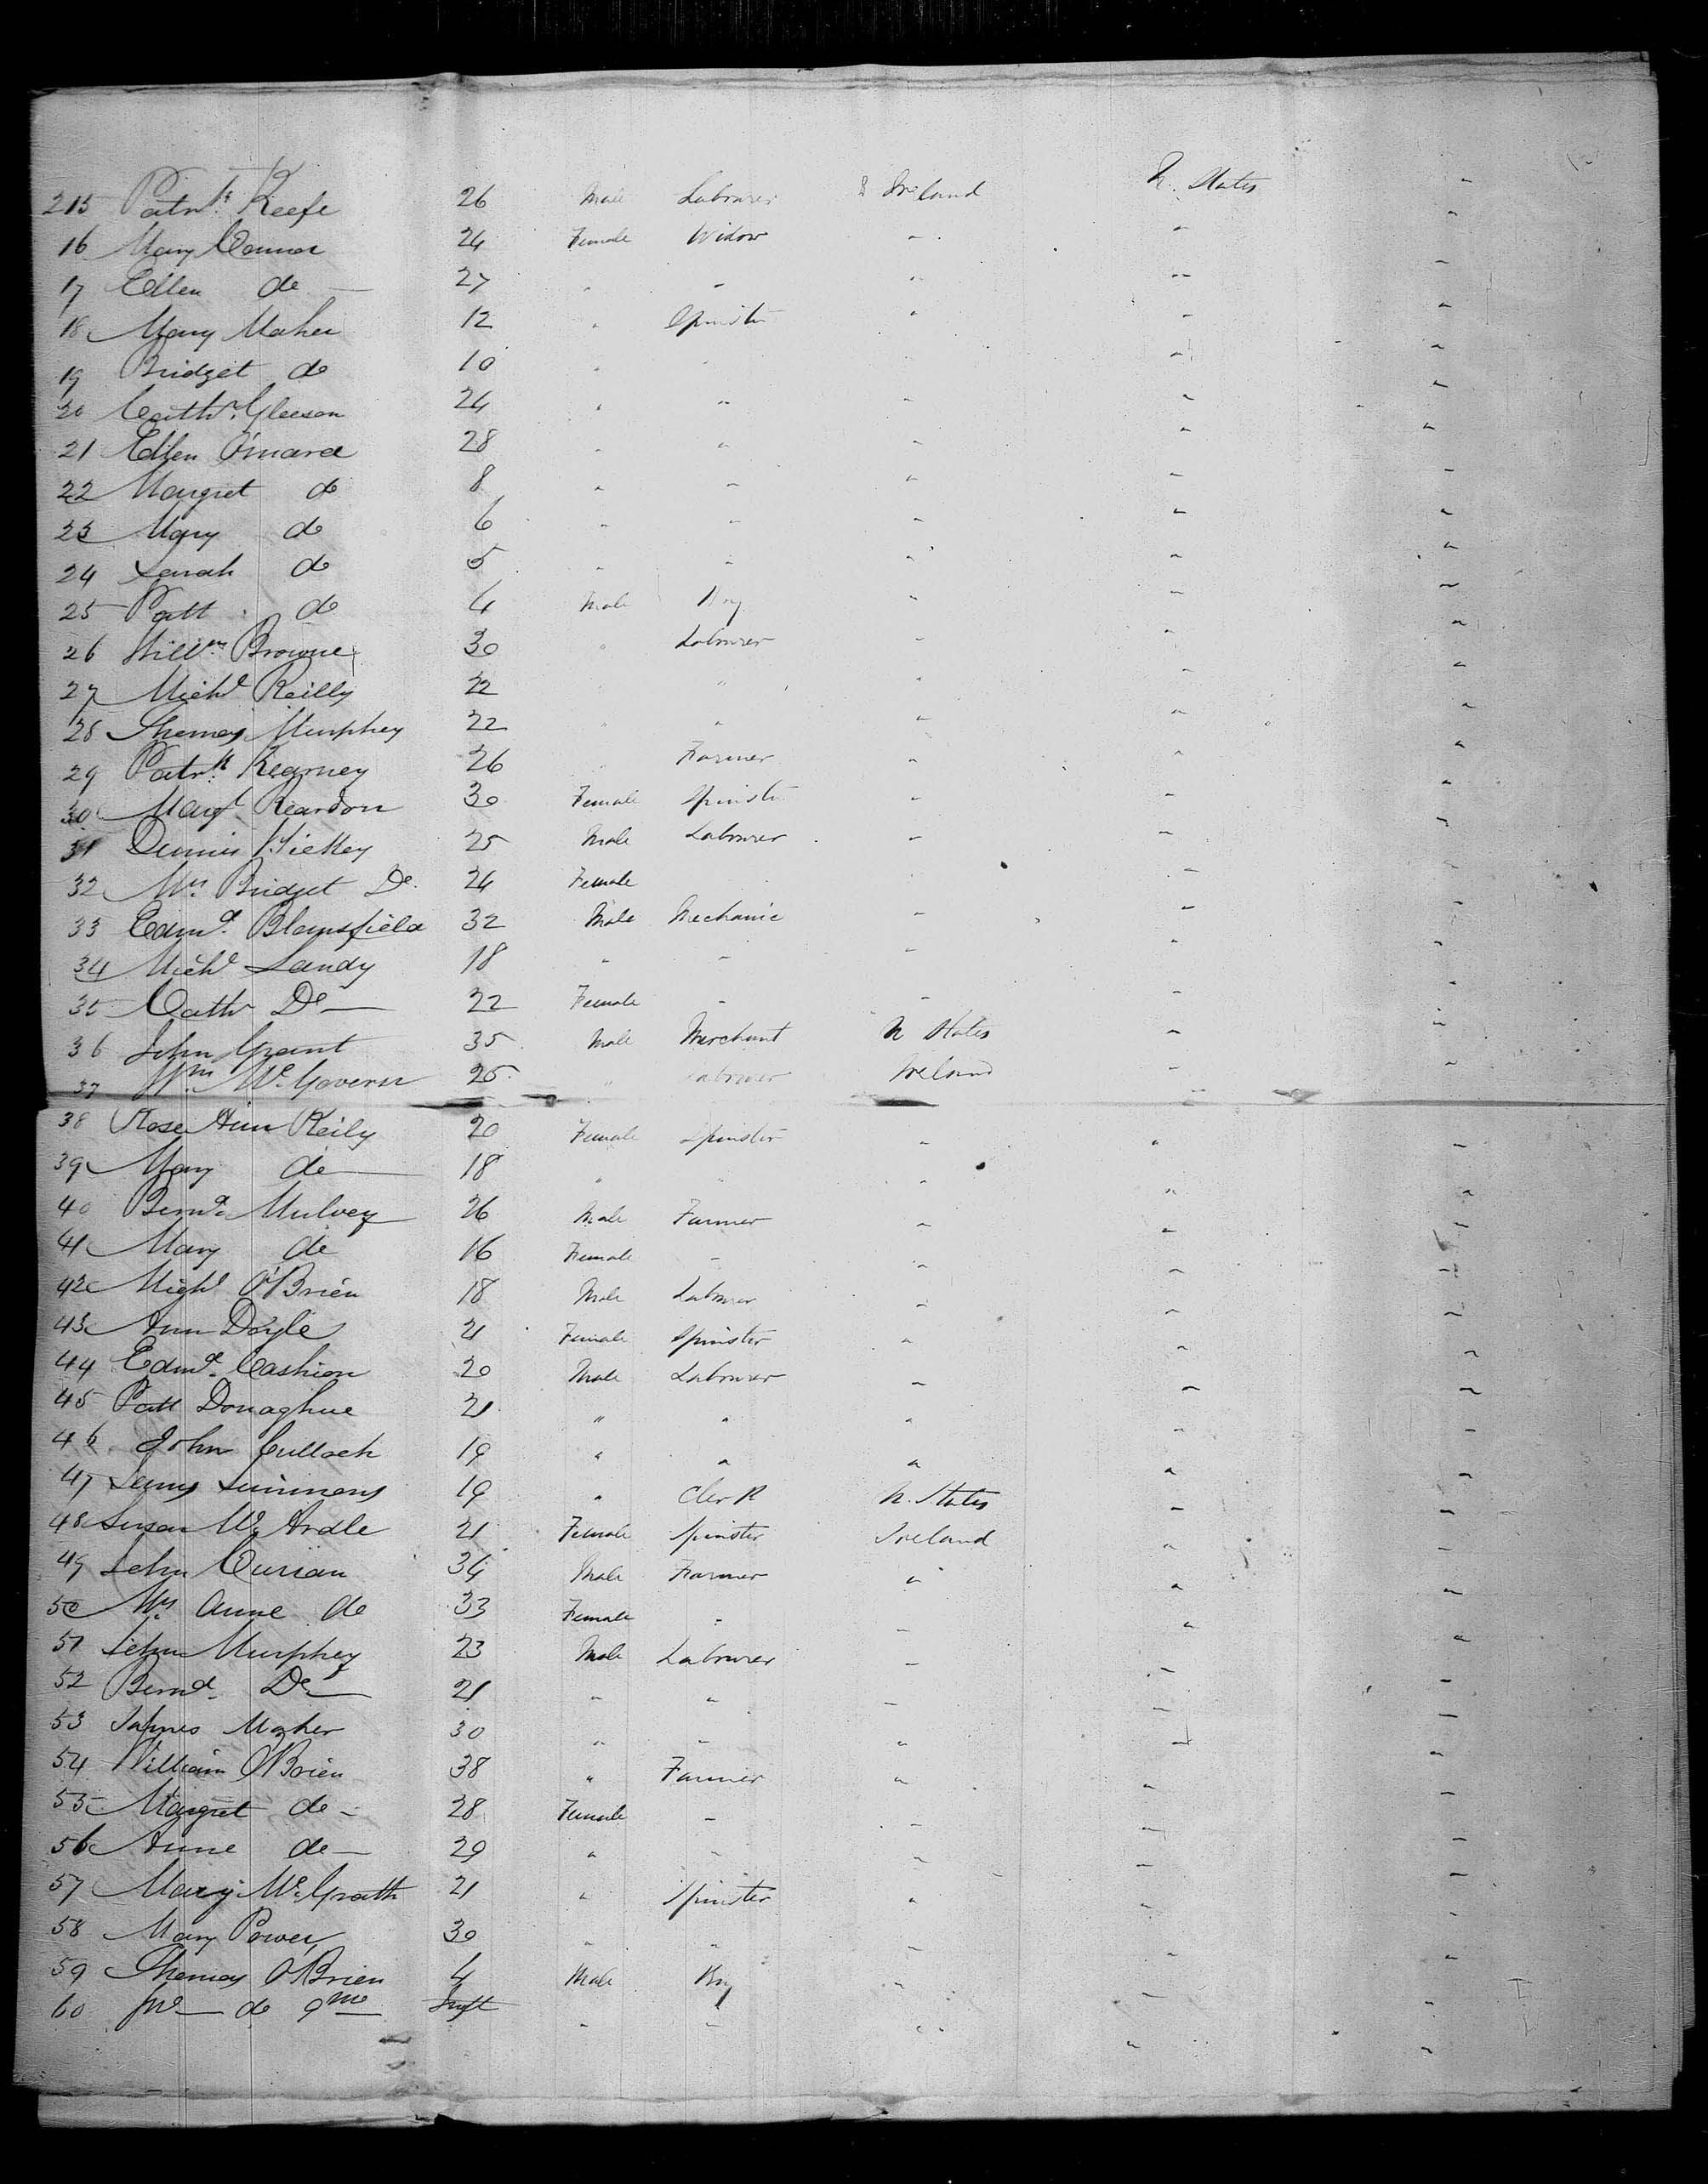 215 Patrk. Keefe 26 Male Labourer Ireland U. States "
16 Mary Connor 24 Female Widow " " "
17 Ellen do — 27 " " " " "
18 Mary Maher 12 " Spinster " " "
19 Bridget do 10 " " " "
20 Cathr. Gleeson 24 " " " " "
21 Ellen O'mara 28 " " " " "
22 Margret do 8 " " " " "
23 Mary do 6 " " " " "
24 Sarah do 5 " " " " "
25 Patt do 4 Male Boy " " "
26 Willm. Browne 30 " Labourer " " "
27 Michl Reilly 22 " " " " "
28 Thomas Murphey 22 " " " " "
29 Patrk. Kearney 26 " Farmer " " "
30 Margt Reardon 30 Female Spinster " " "
31 Dennis Hickey 25 Male Labourer " " "
32 Mrs. Bridget Do. 24 Female " "
33 Edmd. Blomsfield 32 Male Mechanic " " "
34 Michl Landy 18 " " " " "
35 Cathr Do — 22 Female " " " "
36 John Grant 35 Male Merchant U States " "
37 Wm. Mc.Govern 25 " Labourer Ireland " "
38 Rose Ann Reily 20 Female Spinster " " "
39 Mary do — 18 " " " " "
40 Bernd. Mulvey 26 Male Farmer " " "
41 Mary do 16 Female " " " "
42 Michl O'Brien 18 Male Labourer " " "
43 Ann Doyle 21 Female Spinster " " "
44 Edmd. Cashion 20 Male Labourer " " "
45 Patt Donaghue 21 " " " " "
46 John Cullock 19 " " " " "
47 Simmons 19 " Clerk U. States " "
48 Susan Mc.Ardle 21 Female Spinster Ireland " "
49 John Curran 34 Male Farmer " " "
50 Mrs. Anne do 33 Female " " " "
51 John Murphey 23 Male Labourer " " "
52 Bernd. Do — 21 " " " " "
53 James Maher 30 " " " " "
54 William O'Brien 38 " Farmer " " "
55 Margret do — 28 Female " " " "
56 Anne do — 29 " " " " "
57 Mary Mc.Grath 21 " Spinster " " "
58 Mary Power 30 " " " " "
59 Thomas O'Brien 4 Male Boy " " "
60 Jno — do 9 mo Inft " " " " "